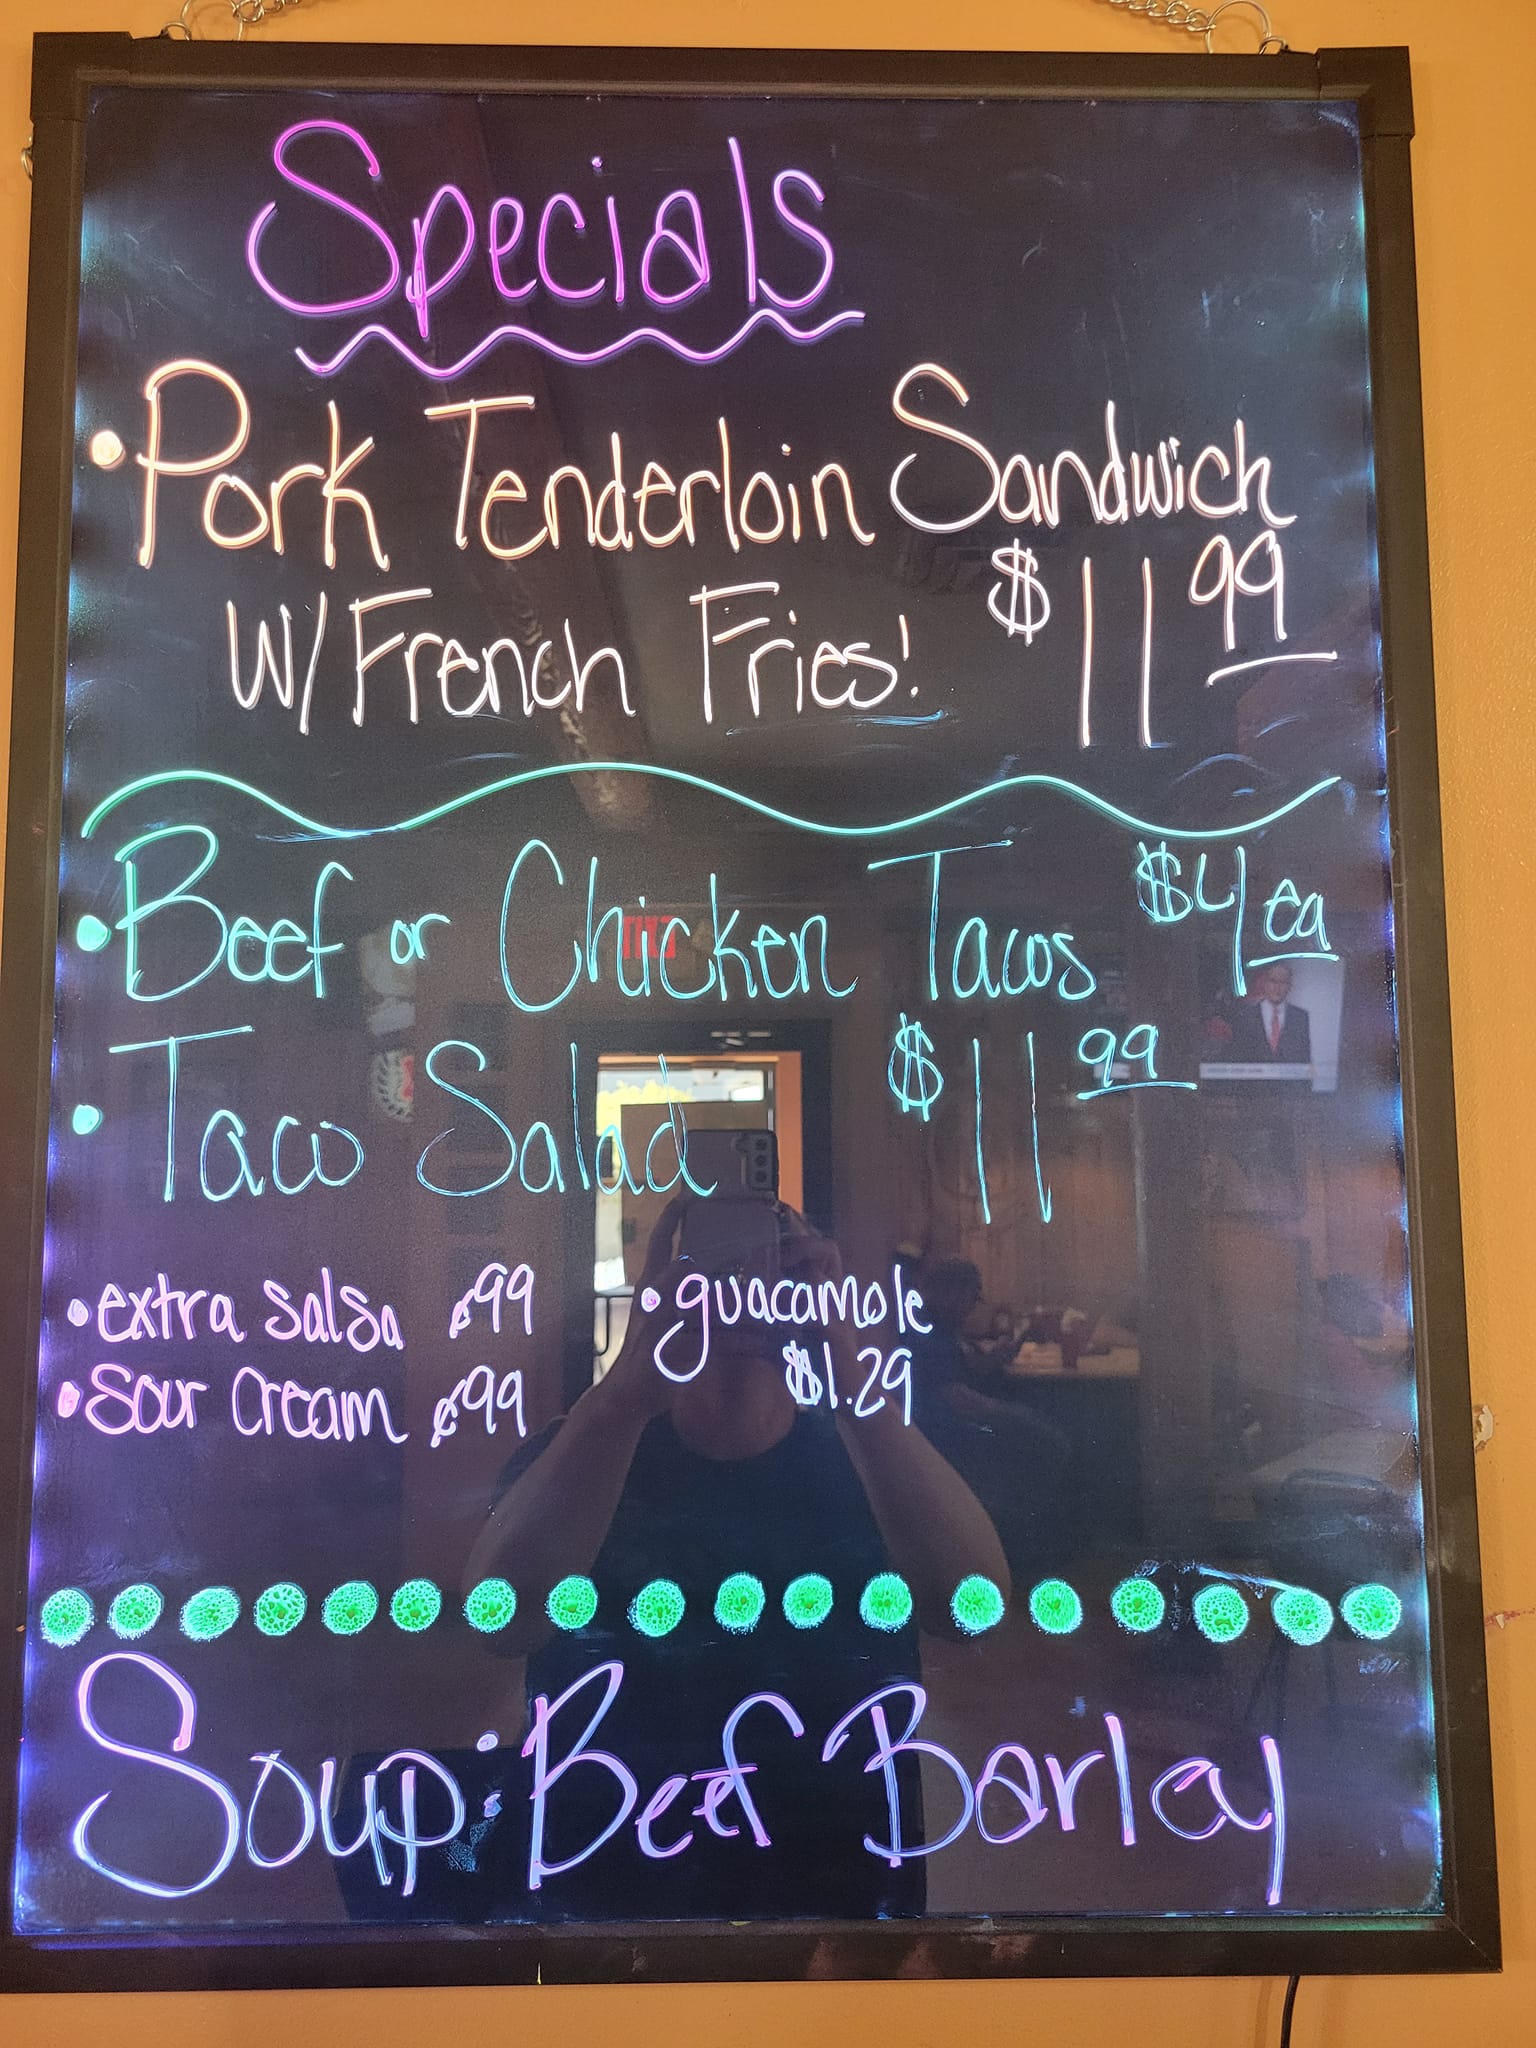 Specials
• Pork Tenderloin Sandwich
W/ French Fries! $11 99
• Beef or Chicken Tacos $4 ea
• Taco Salad $11 99
• extra salsa ¢99 • guacamole
$1.29
• Sour Cream ¢99
Soup: Beef Barley